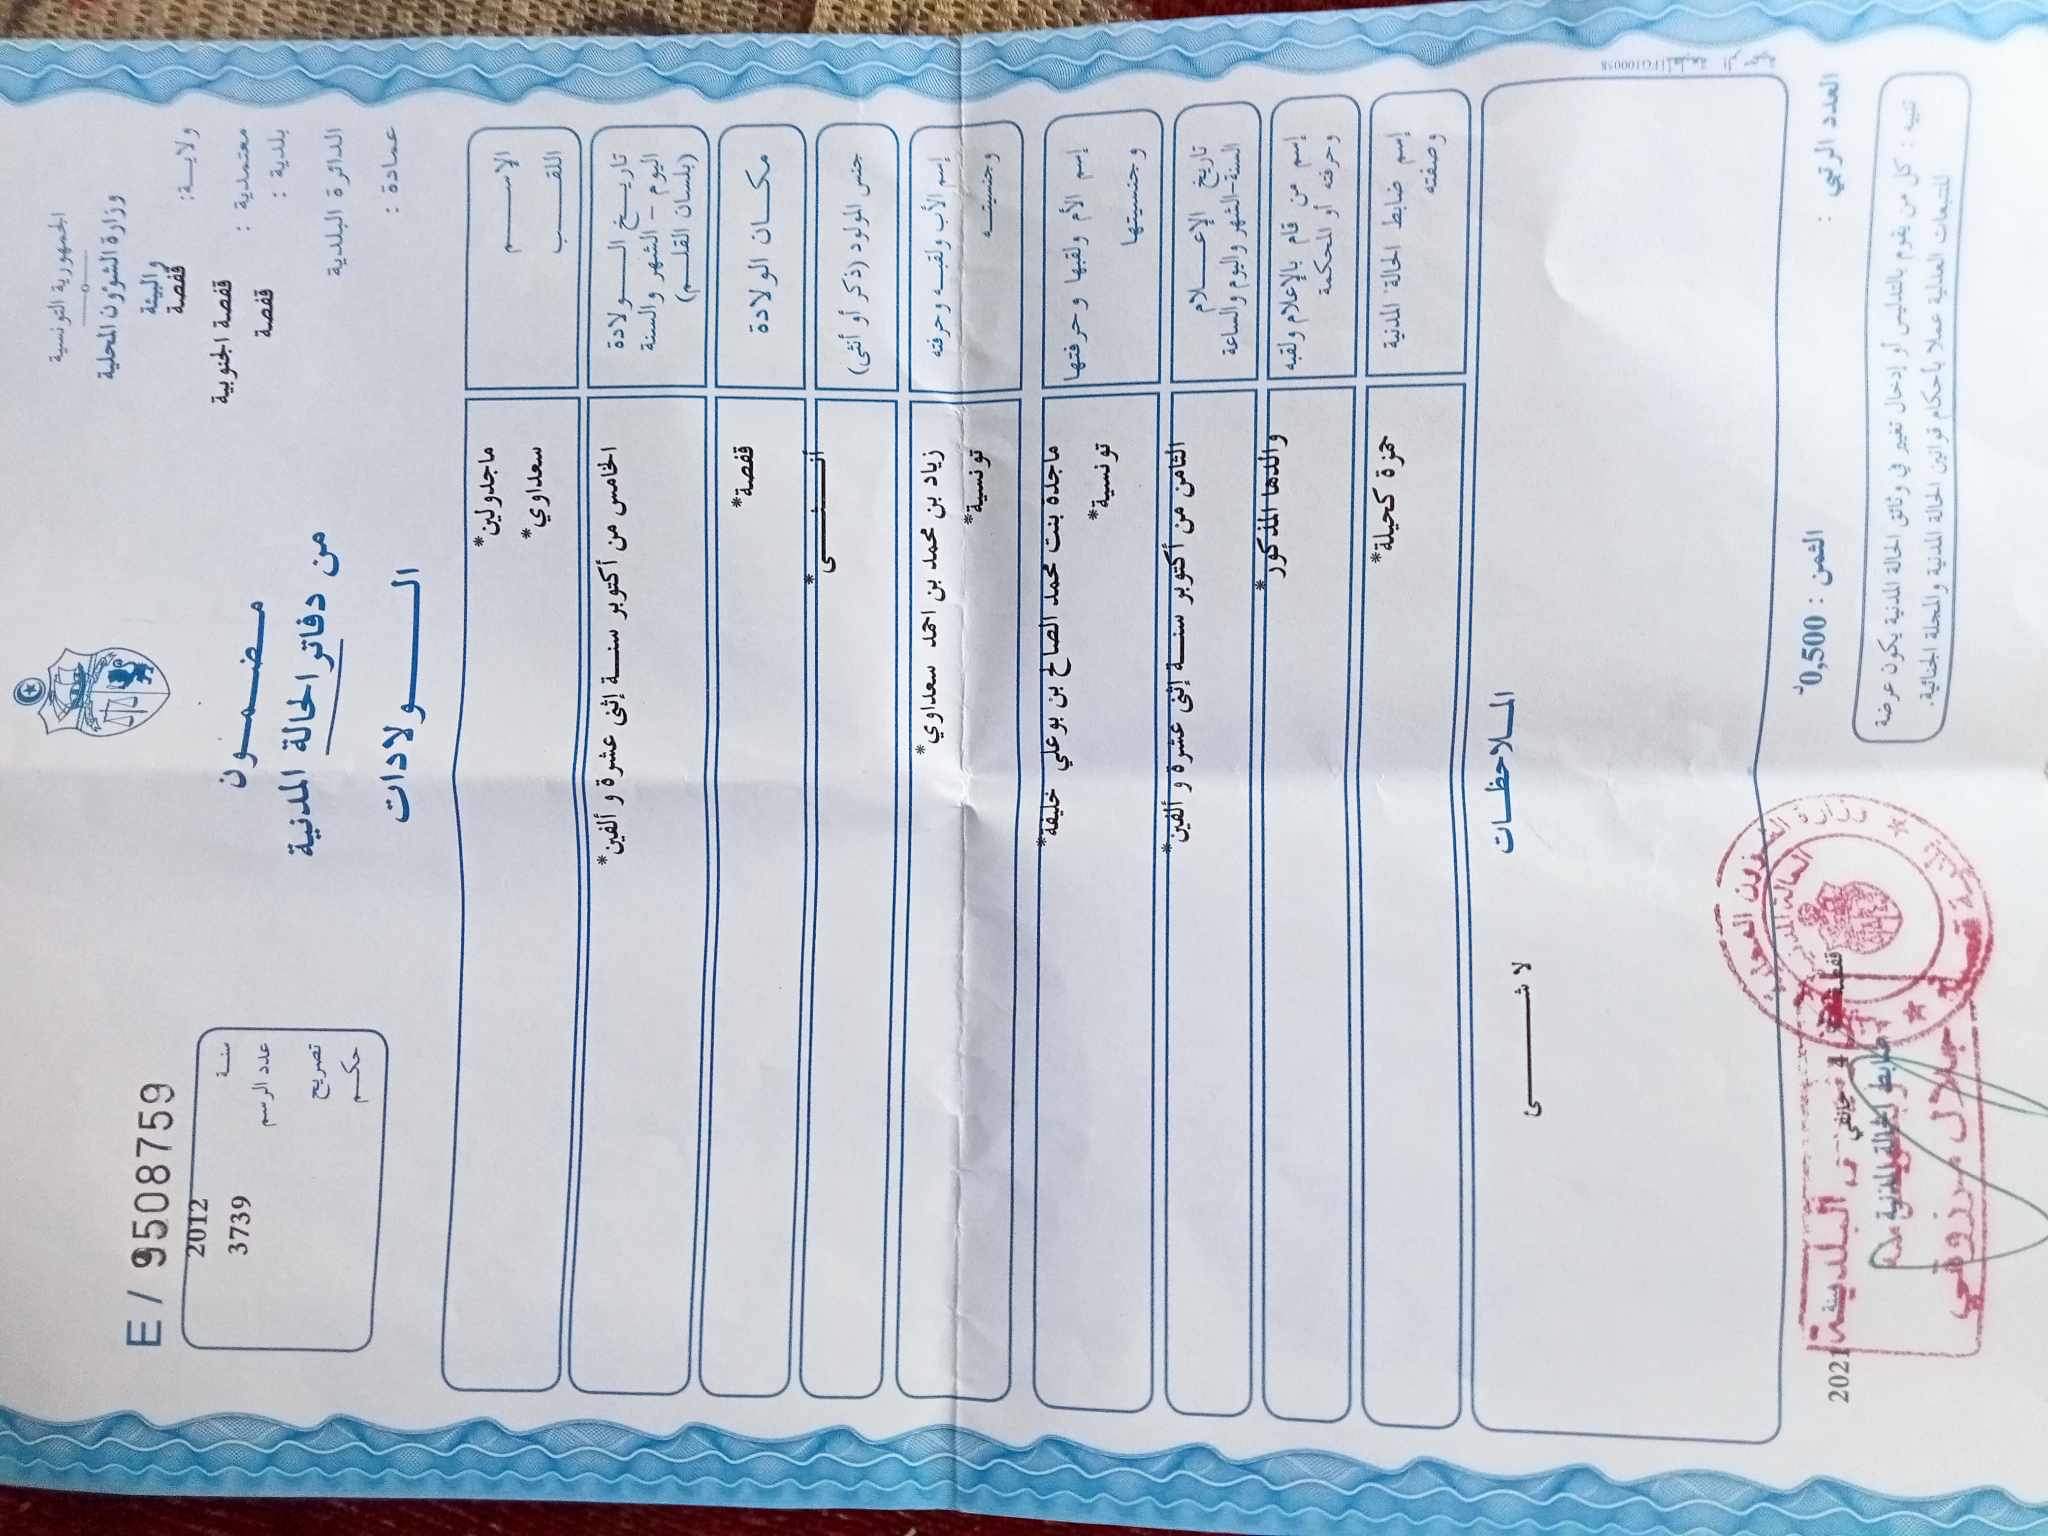 الجمهورية التونسية
وزارة الشؤون المحلية
والبيئة
ولايـة: قفصة
معتمدية : قفصة الجنوبية
بلدية : قفصة
الدائرة البلدية
عمادة :
E / 9508759
سنـة 2012
عدد الرسم 3739
تصريح
حكـم
مـضـمـــون
من دفاتر الحالة المدنية
الـــولادات
الإســـــم ماجدولين*
اللقـــب سعداوي*
تاريـخ الــــولادة الخامس من أكتوبر سنـة إثنى عشرة و ألفين*
اليوم – الشهر والسنة
(بلسان القلـم)
مكـان الولادة قفصة*
جنس المولود (ذكر أو أنثى) أنـــثـــى*
إسم الأب ولقبـه وحرفته زياد بن محمد بن احمد سعداوي*
وجنسيتـه تونسية*
إسم الأم ولقبها وحرفتها ماجدة بنت محمد الصالح بن بوعلي خليفة*
وجنسيتها تونسية*
تاريخ الإعـــلام الثامن من أكتوبر سنـة إثنى عشرة و ألفين*
السنة-الشهر واليوم والساعة
إسم من قام بالإعلام ولقبه والدها المذكور*
وحرفته أو المحكمة
إسم ضابط الحالة المدنية حمزة كحيلة*
وصفته
المـلاحظـات
لا شـــــئ
العدد الرتبي :
الثمن : 0,500د
2021
جانفي 4
ضابط الحالة المدنية
وزارة الشؤون المحلية
الحالة المدنية
بلدية قفصة
جلال مرزوقي
تنبيه : كل من يقوم بالتدليس أو إدخال تغيير في وثائق الحالة المدنية يكون عرضة
للتتبعات العدلية عملا بأحكام قوانين الحالة المدنية والمجلة الجنائية.